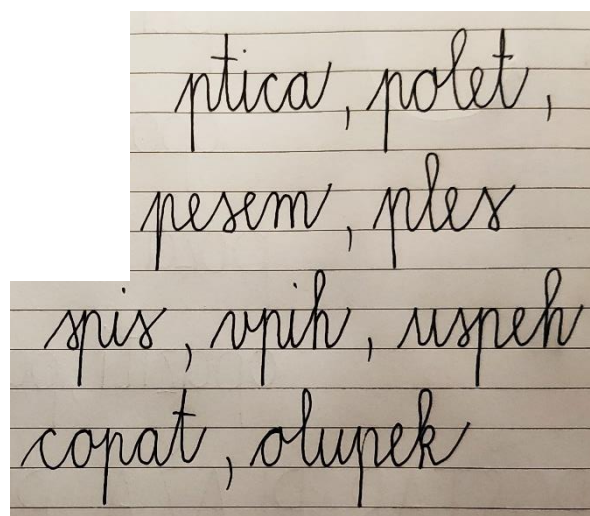 ptica, polet,
pesem, ples
spis, vpih, uspeh
copat, olupek